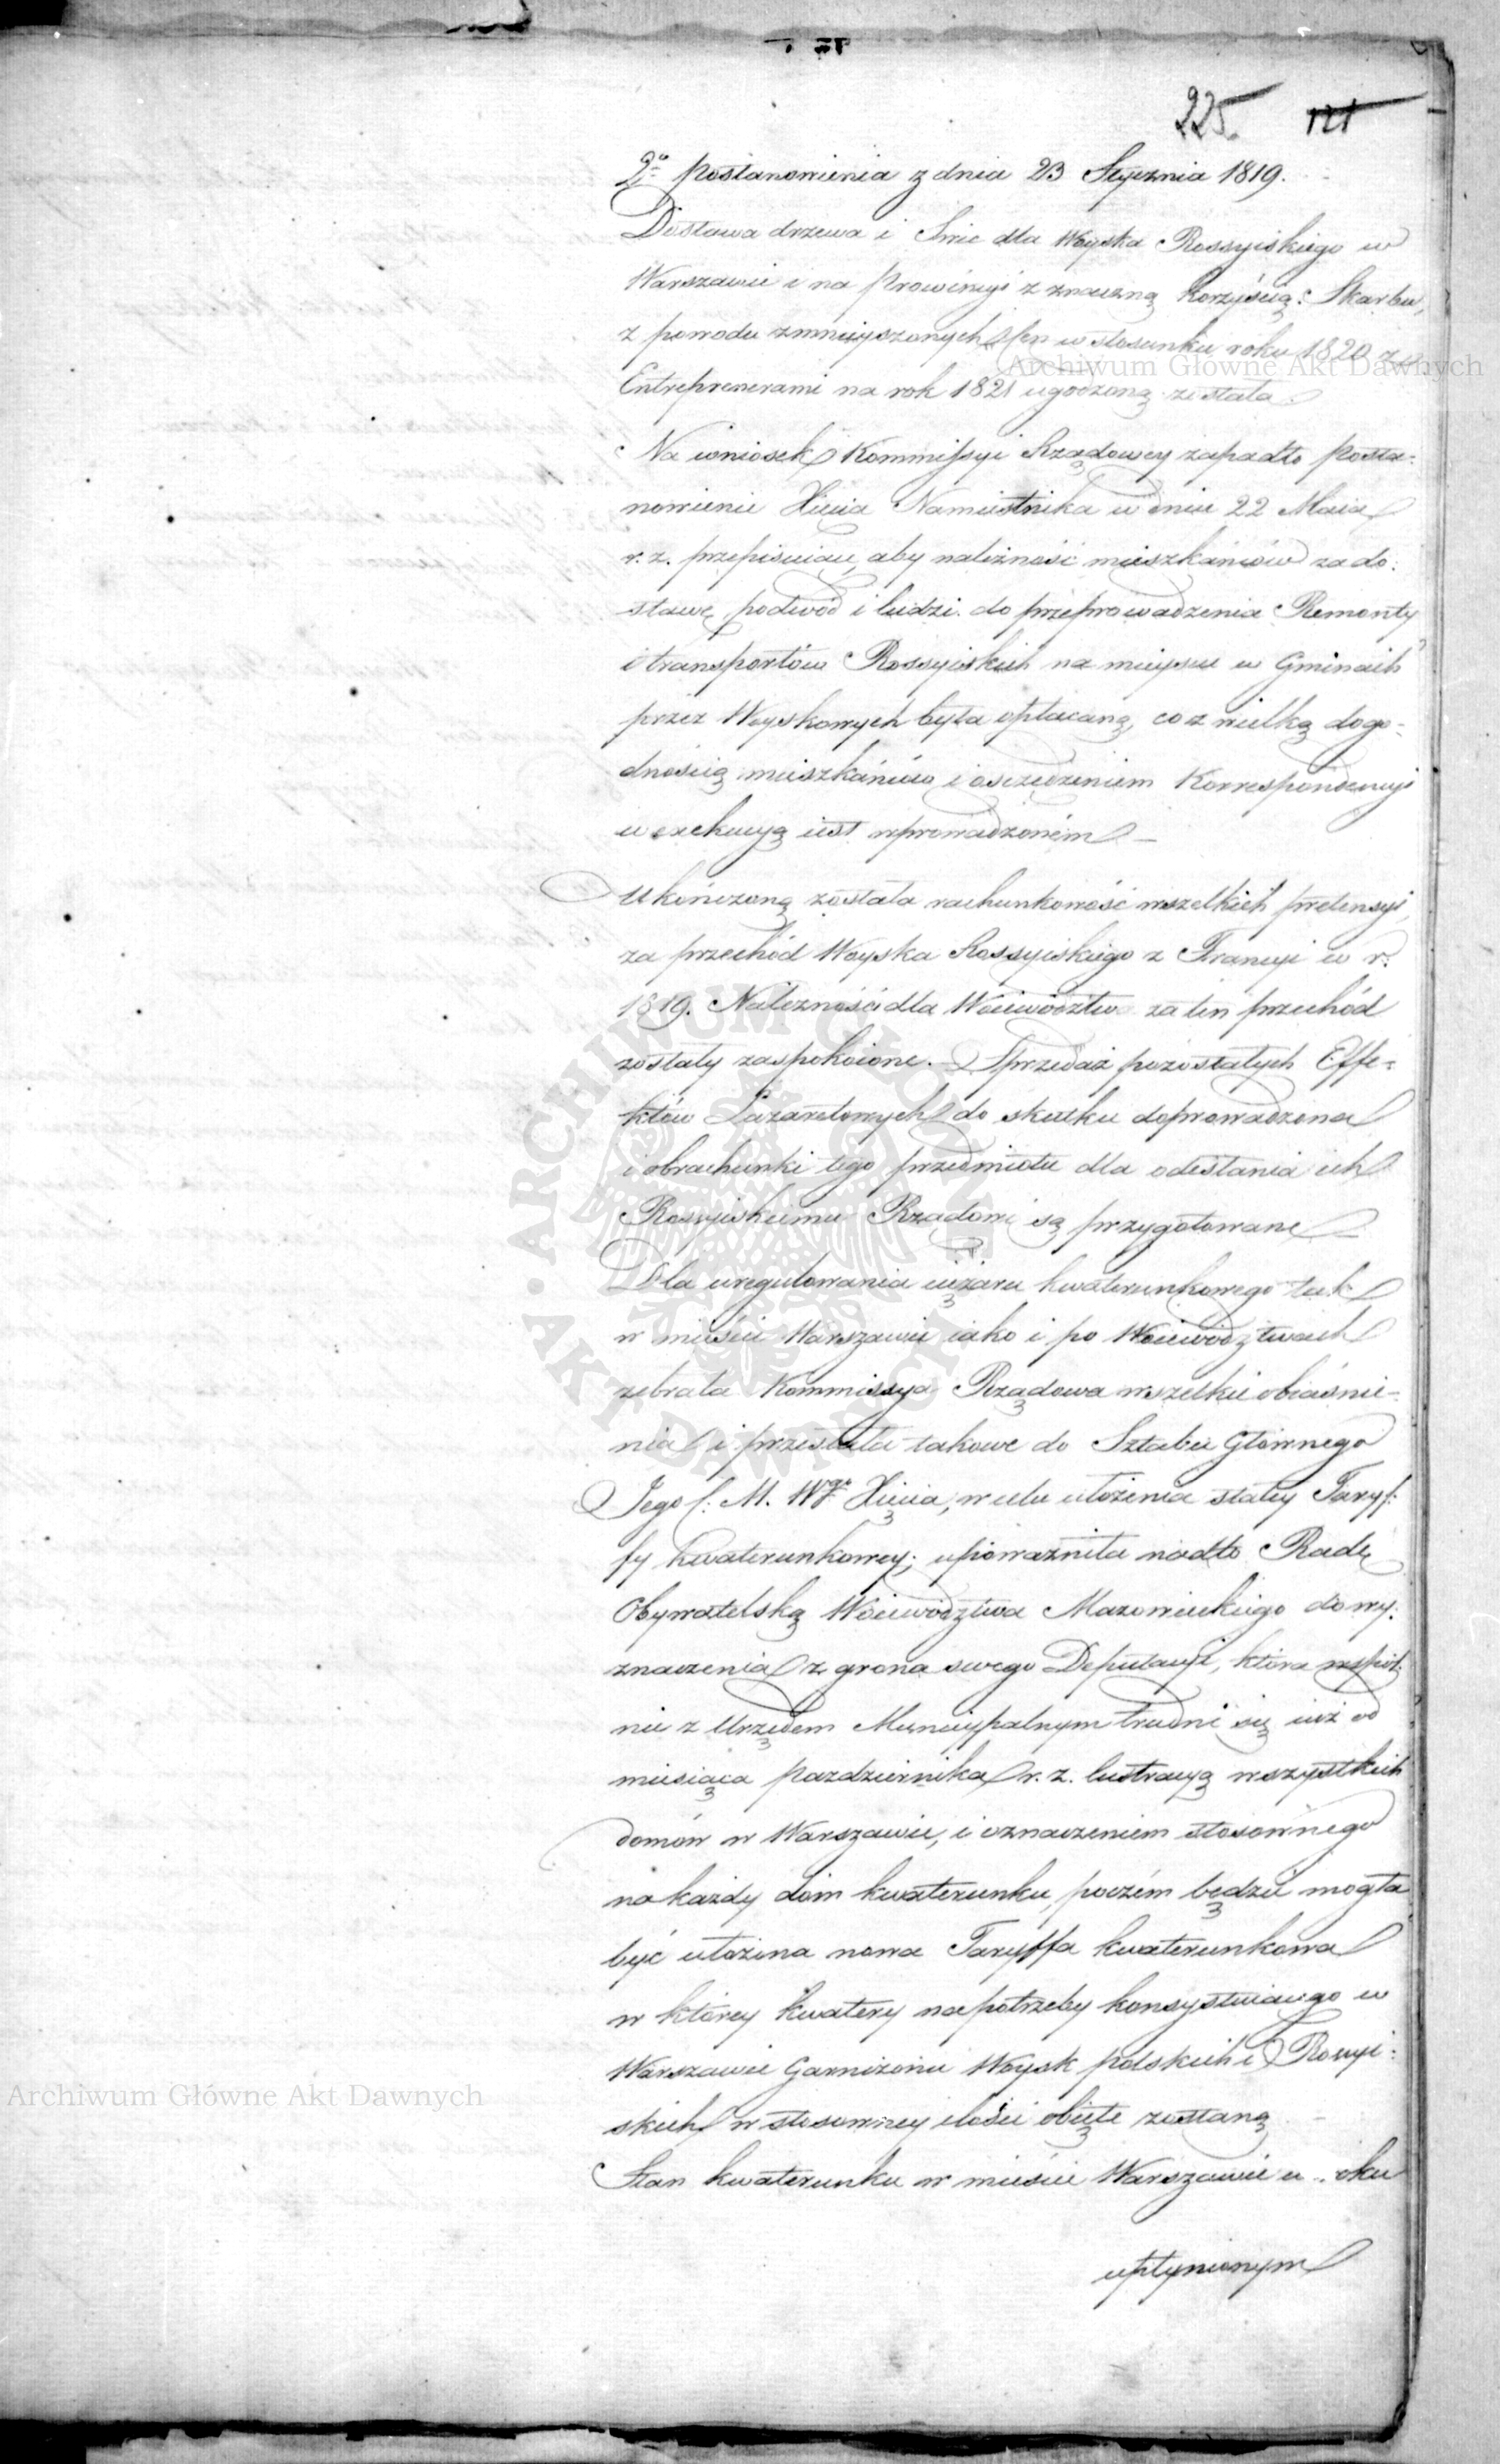 225. 121
2º Postanowienia z dnia 23 Stycznia 1819.
Dostawa drzewa i Swic dla Woyska Rossyiskiego w
Warszawie i na Prowincyi z znaczną korzyścią Skarbu,
z powodu zmnieyszonych Cen w stosunku roku 1820 z
Entreprenerami na rok 1821 ugodzoną została.
Na wniosek Kommissyi Rządowey zapadło Posta-
nowienie Xięcia Namiestnika w dniu 22 Maia
r. z. przepisuiące, aby należność mieszkańców za do-
stawę podwód i ludzi do przeprowadzenia Remonty
i transportów Rossyiskich na mieyscu w Gminach
przez Woyskowych była opłacaną, co z wielką dogo-
dnością mieszkańców i oszczędzeniem Korrespondencyi
w exekucyą iest wprowadzoném
Ukończoną została rachunkowość wszelkich pretensyi
za przechód Woyska Rossyiskiego z Francyi w r.
1819. Należności dla Woiewództwa za ten przechód
zostały zaspokoione. Sprzedaż pozostałych Effe-
któw Lazaretowych do skutku doprowadzona
i obrachunki tego przedmiotu dla odesłania ich
Rossyiskiemu Rządowi są przygotowane
Dla uregulowania ciężaru kwaterunkowego tak
w mieście Warszawie iako i po Woiewództwach
zebrała Kommissya Rządowa wszelkie obiaśnie-
nia i przesłała takowe do Sztabu Głównego
Jego C: M. Wgo Xięcia, w celu ułożenia stałey Taryf-
fy kwaterunkowey; upoważniła nadto Radę
Obywatelską Woiewództwa Mazowieckiego do wy-
znaczenia z grona swego Deputacyi, która wspól-
nie z Urzędem Municypalnym trudni się iuż od
miesiąca pazdziernika r. z. lustracyą wszystkich
domów w Warszawie, i oznaczeniem stosownego
na każdy dom kwaterunku, poczém będzie mogła
być ułożona nowa Taryffa kwaterunkowa
w którey kwatery na potrzeby konsystuiącego w
Warszawie Garnizonu Woysk polskich i Rossyi-
skich w stosowney ilości obięte zostaną
Stan kwaterunku w mieście Warszawie w roku
upłynionym
Archiwum Główne Akt Dawnych
Archiwum Główne Akt Dawnych
ARCHIWUM GŁÓWNE AKT DAWNYCH